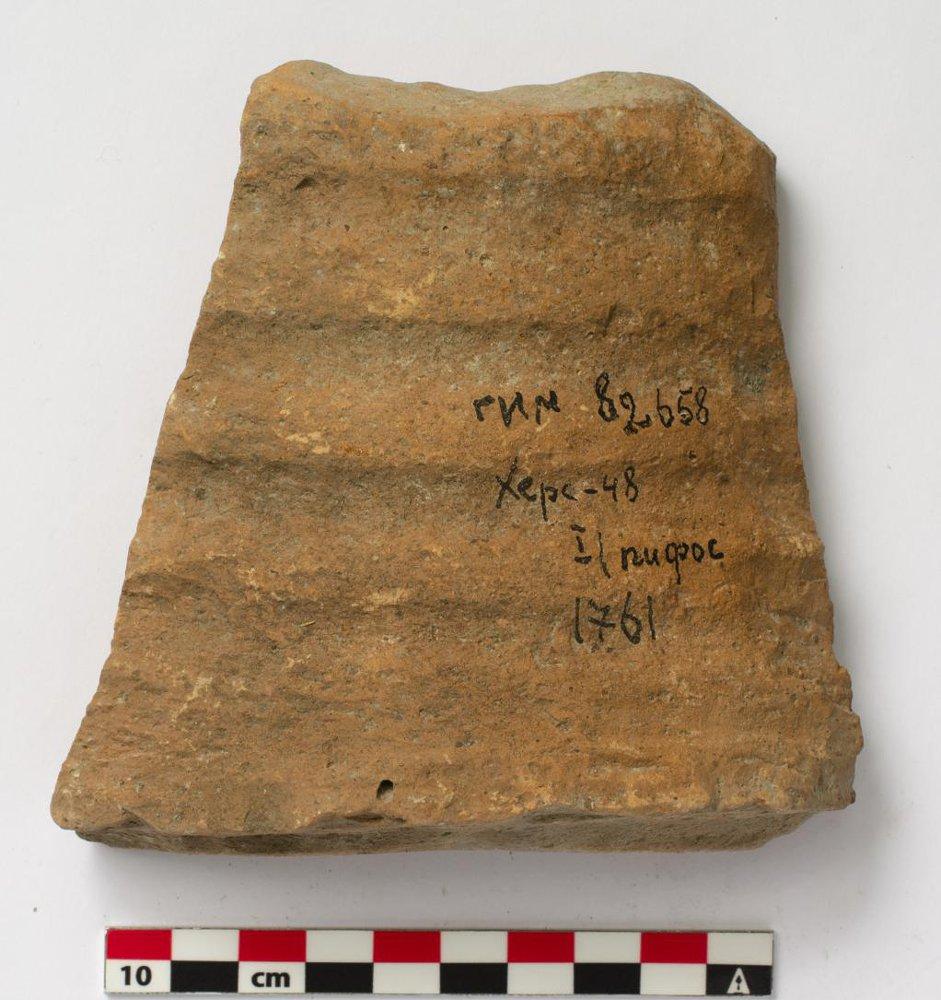 гим 82658
Херс-48
II пифос
1761
10 cm